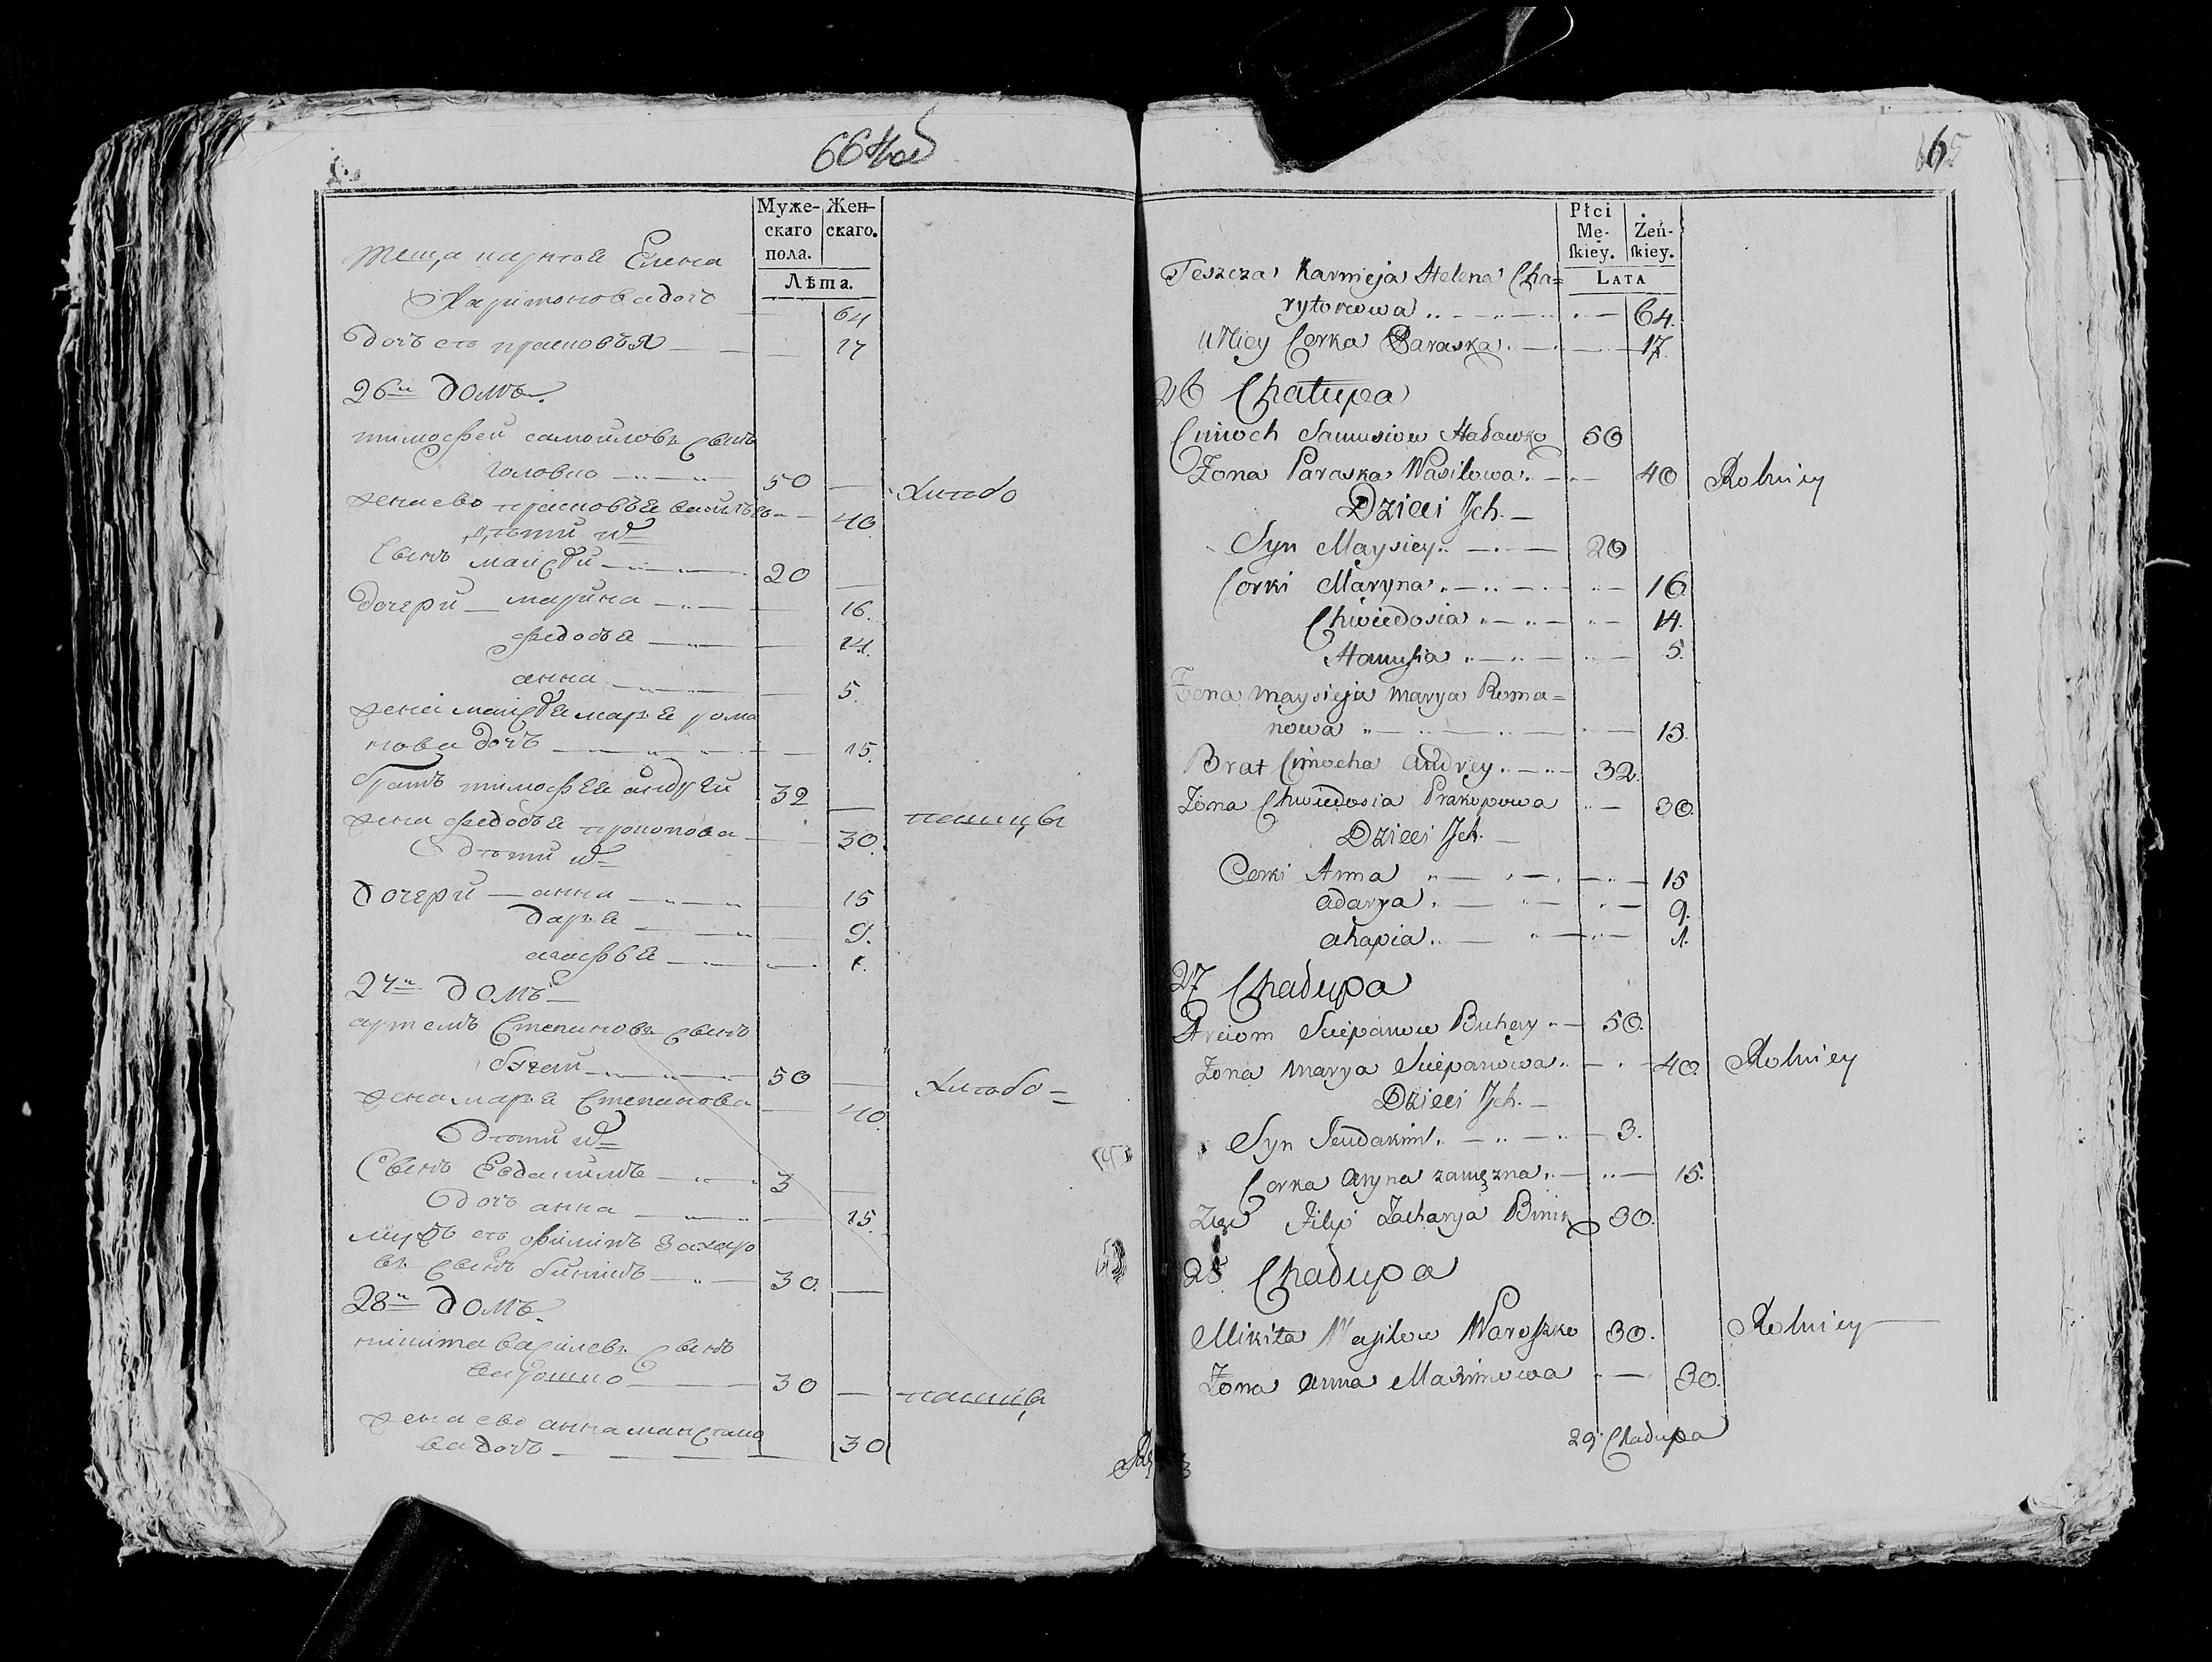 664 об
Муже-
скаго
пола.
Жен-
скаго.
Лѣта.
теща карнея Елена
Харитонова дочь 64
дочь ее прасковья 17
26й домъ
тимофей самойловъ сынъ
головко 50
жена ево прасковья васильева 40
дѣти их
Сынъ майсѣй 20
дочери марина 16.
федосья 14.
анна 5.
жена майсѣя марья рома
нова дочь 15.
братъ тимофея андрей 32
жена федосья прокопова 30.
дѣти их
дочери анна 15
дарья 9.
агафья 1.
27й домъ
артемъ Степановъ сынъ
бугай 50
жена марья Степанова 40
дѣти их
Сынъ Евдакимъ 3
дочь анна 15.
мужъ ее филипъ Захаро
въ сынъ 30.
28й домъ
никита васильевъ сынъ
варошко 30
жена ево анна максимо
ва дочь 30
хлѣбо
пашцы
хлѣбо=
пашцы
65
Płci
Mę-
ſkiey.
Żeń-
ſkiey.
LATA
Teszcza Karnieja Helena Cha=
rytonowa 64.
u Niey Corka Paraska 17.
26 Chałupa
Cimoch Samusiow Hałowko 50
Żona Paraska Wasilowa 40 Rolnicy
Dzieci Jch.
Syn Maysiey 20
Corki Maryna 16
Chwiedosia 14.
Hanusia 5.
Żona Maysieja Marya Roma=
nowa 15.
Brat Cimocha Andrey 32.
Żona Chwiedosia Prakopowa 30.
Dzieci Jch.
Corki Anna 15
Adarya 9.
Ahapia 1.
27 Chałupa
Arciom Sciepanow Buhay 50.
Żona Marya Sciepanowa 40. Rolnicy
Dzieci Jch.
Syn Jeudakim 3.
Corka Aryna zamężna 15.
Zięć Filip Zacharya 30.
28 Chałupa
Mikita Wasilow Waroszko 30. Rolnicy
Żona Anna Maximowa 30.
29 Chałupa